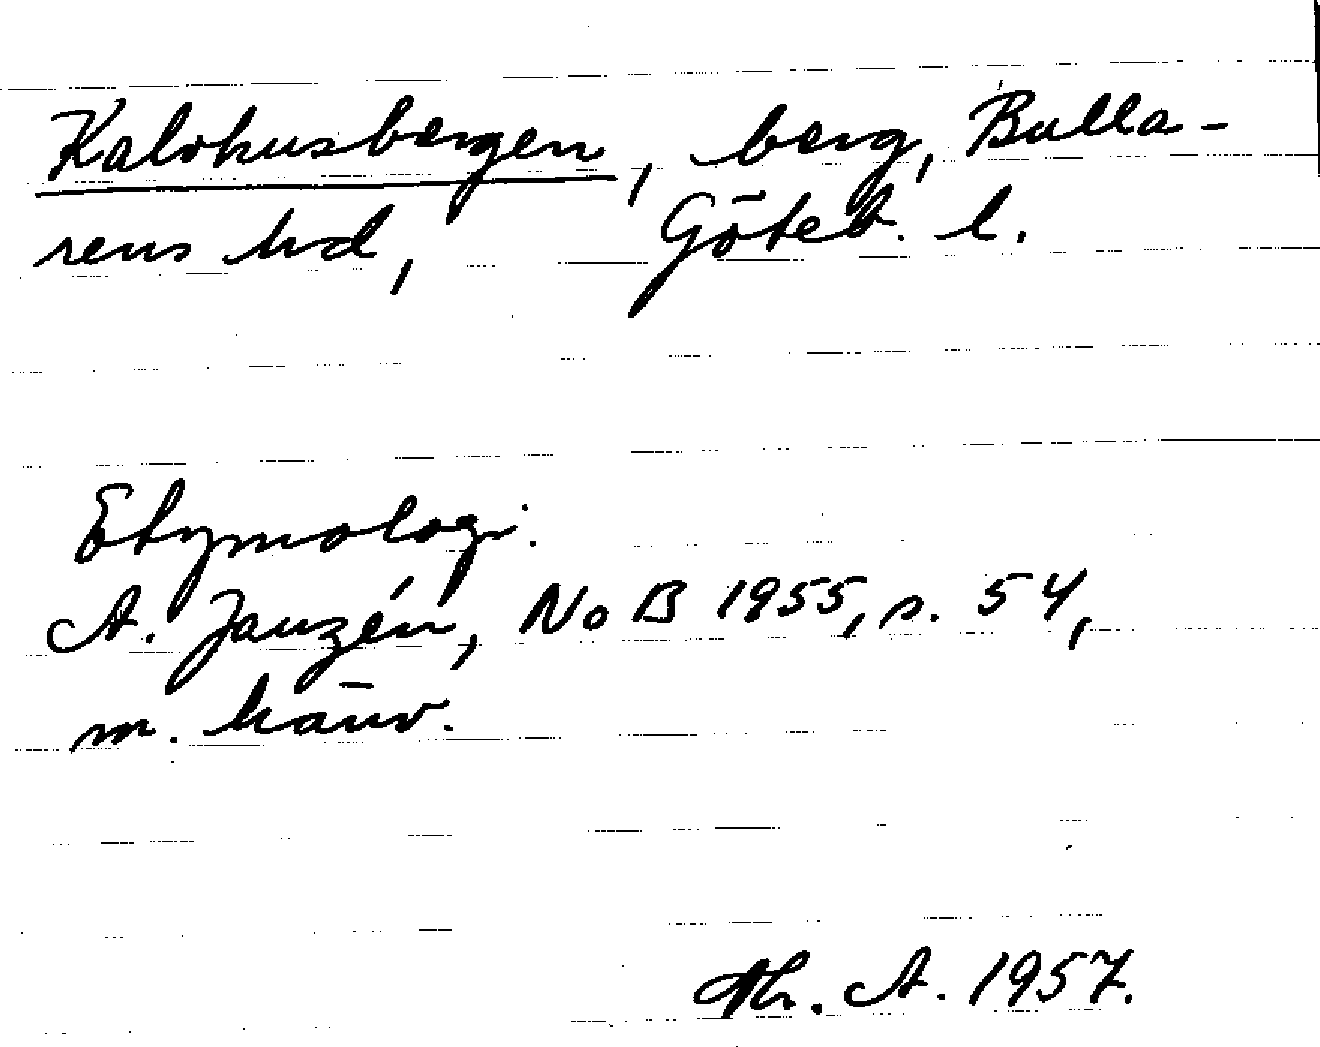 Kalvhusbergen, berg, Bulla-
rens hd, Göteb. l.
Etymologi:
A. Janzén, NoB 1955, s. 54,
m. hänv.
Th. A. 1957.